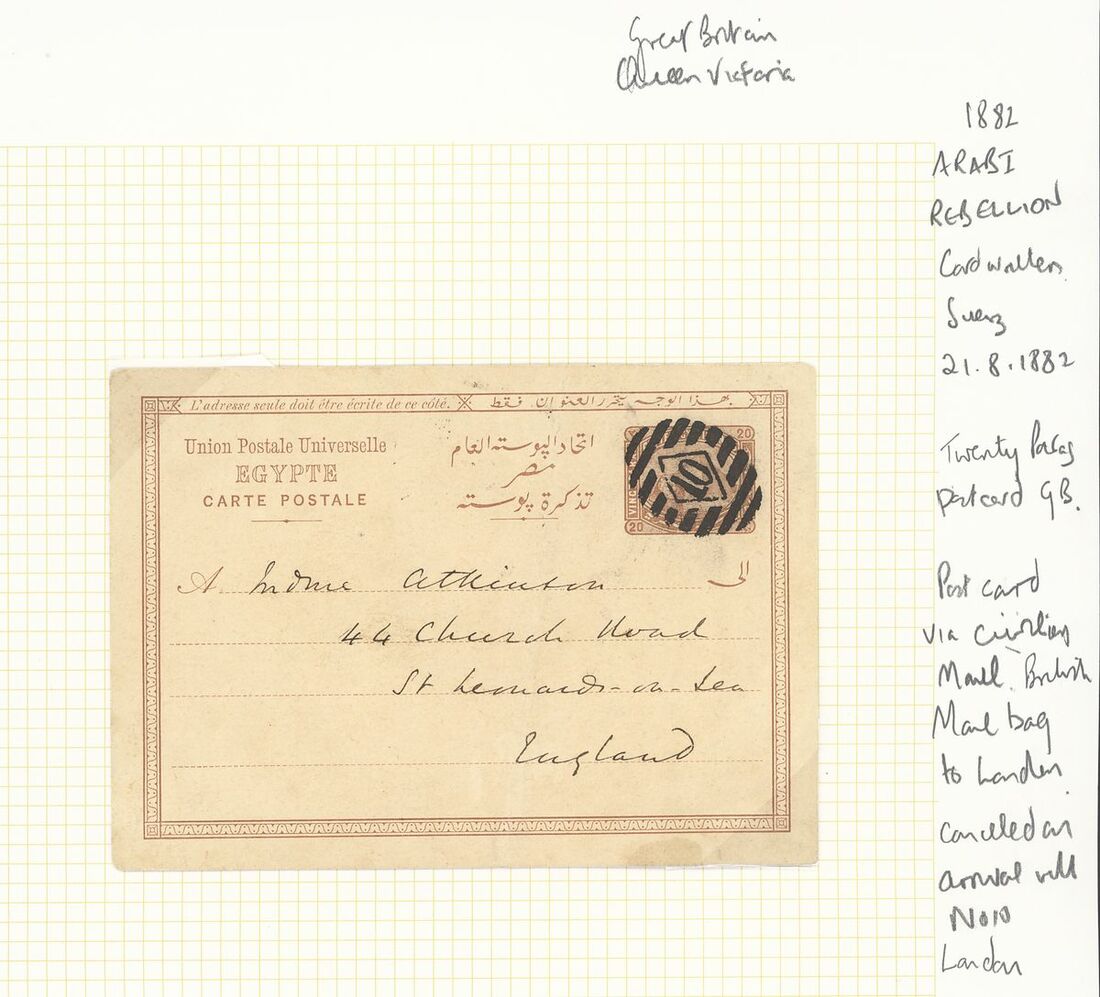 Great Britain
Queen Victoria
1882
ARABI
REBELLION
Card written
Suez
21.8.1882
Twenty Paras
postcard GB.
Post card
via civilian
Mail. British
Mail bag
to London
canceled on
arrival with
No10
London
L'adresse seule doit être écrite de ce côté.
بهذا الوجه يتحرر العنوان فقط
Union Postale Universelle
EGYPTE
CARTE POSTALE
اتحاد البوسته العام
مصر
تذكرة بوسته
20
VINGT
20
10
A Mdme Atkinson الى
44 Church Road
St Leonards-on-Sea
England